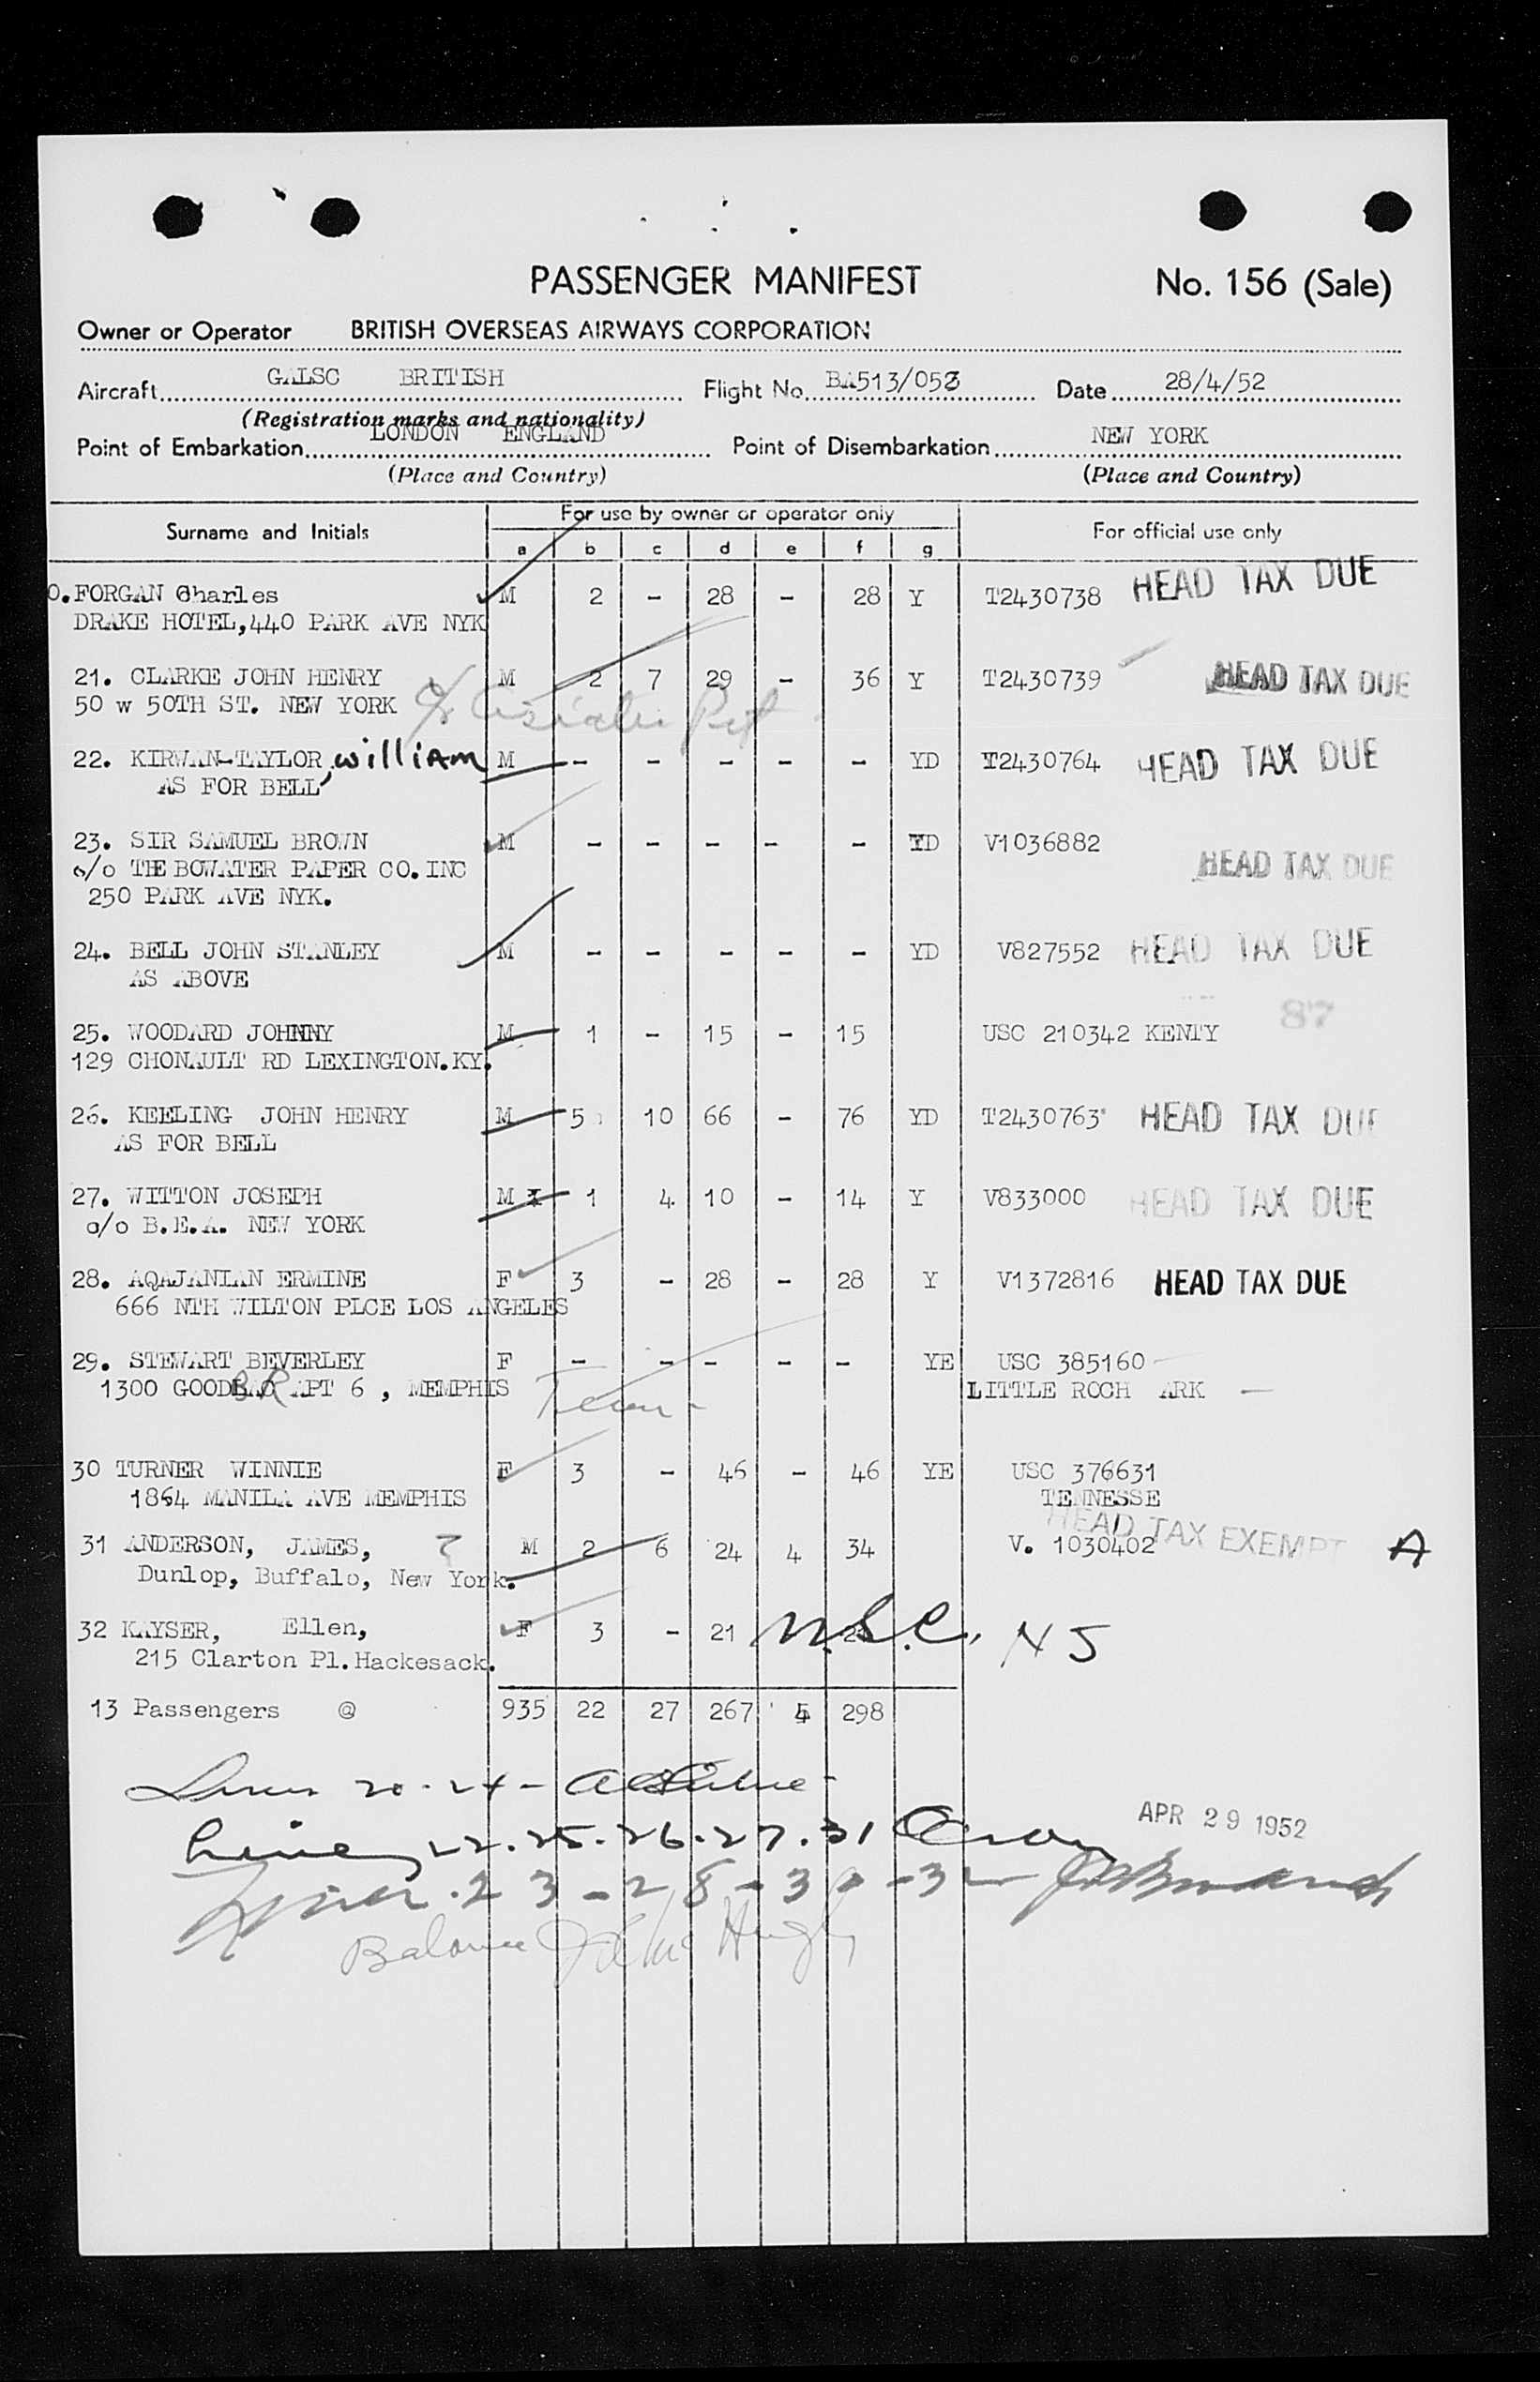 PASSENGER MANIFEST No. 156 (Sale)
Owner or Operator BRITISH OVERSEAS AIRWAYS CORPORATION
Aircraft GALSC BRITISH Flight No. BA513/053 Date 28/4/52
(Registration marks and nationality)
Point of Embarkation LONDON ENGLAND Point of Disembarkation NEW YORK
(Place and Country) (Place and Country)
Surname and Initials For use by owner or operator only For official use only
a b c d e f g
0. FORGAN Charles M 2 - 28 - 28 Y T2430738 HEAD TAX DUE
DRAKE HOTEL,440 PARK AVE NYK
21. CLARKE JOHN HENRY M 2 7 29 - 36 Y T2430739 HEAD TAX DUE
50 w 50TH ST. NEW YORK
22. KIRWAN-TAYLOR, william M - - - - - YD T2430764 HEAD TAX DUE
AS FOR BELL
23. SIR SAMUEL BROWN M - - - - - YD V1036882
c/o THE BOWATER PAPER CO. INC HEAD TAX DUE
250 PARK AVE NYK.
24. BELL JOHN STANLEY M - - - - - YD V827552 HEAD TAX DUE
AS ABOVE
87
25. WOODARD JOHNNY M 1 - 15 - 15 USC 210342 KENTY
129 CHONAULT RD LEXINGTON.KY.
26. KEELING JOHN HENRY M 5 10 66 - 76 YD T2430763 HEAD TAX DUE
AS FOR BELL
27. WITTON JOSEPH M 1 4 10 - 14 Y V833000 HEAD TAX DUE
c/o B.E.A. NEW YORK
28. AQAJANIAN ERMINE F 3 - 28 - 28 Y V1372816 HEAD TAX DUE
666 NTH WILTON PLCE LOS ANGELES
29. STEWART BEVERLEY F - - - - - YE USC 385160
1300 GOODBAR APT 6 , MEMPHIS Tenn- LITTLE ROCH ARK
30 TURNER WINNIE F 3 - 46 - 46 YE USC 376631
1864 MANILA AVE MEMPHIS TENNESSE
HEAD TAX EXEMPT A
31 ANDERSON, JAMES, ? M 2 6 24 4 34 V. 1030402
Dunlop, Buffalo, New York.
32 KAYSER, Ellen, F 3 - 21 U.S.C. NJ
215 Clarton Pl. Hackesack.
13 Passengers @ 935 22 27 267 298
20.24-
22.25.26.27.31
APR 29 1952
23-28-30-32
Balance